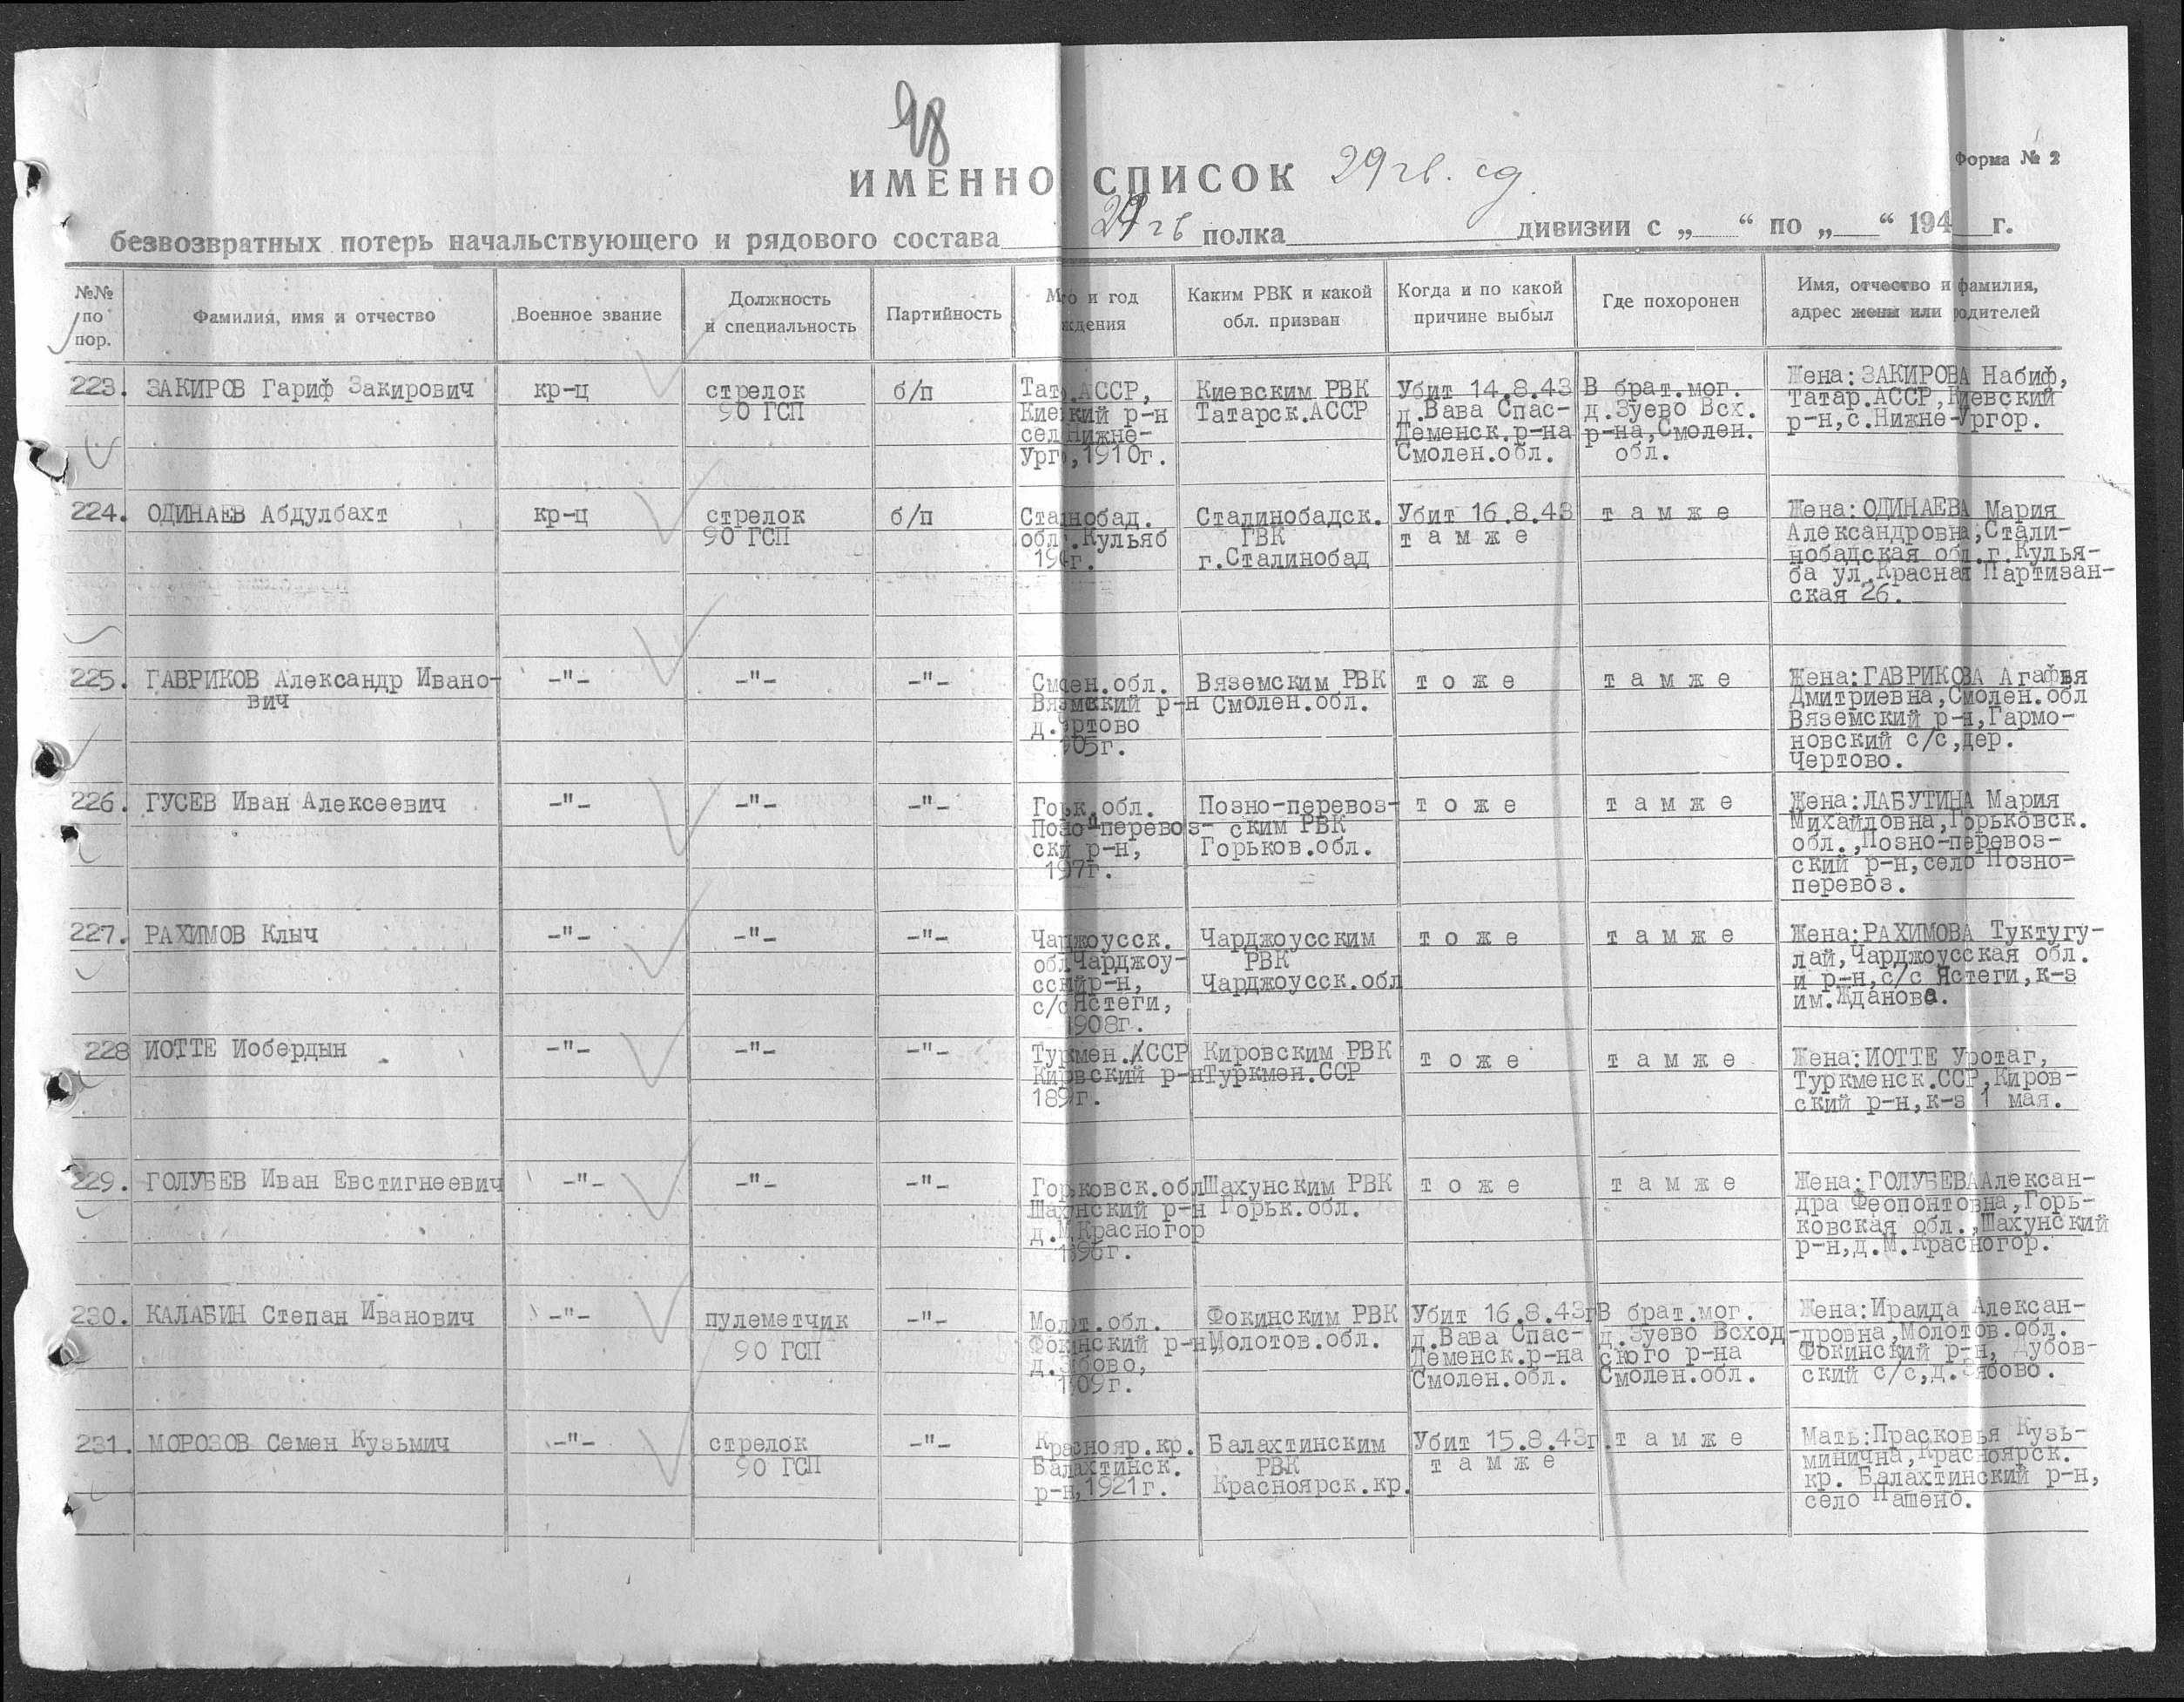 98
ИМЕННО СПИСОК 29 гв. сд.
Форма № 2
безвозвратных потерь начальствующего и рядового состава гв полка дивизии с „ “ по „ “ 194 г.
№№ по пор.
Фамилия, имя и отчество
Военное звание
Должность и специальность
Партийность
М о и год ждения
Каким РВК и какой обл. призван
Когда и по какой причине выбыл
Где похоронен
Имя, отчество и фамилия, адрес жены или родителей
223. ЗАКИРОВ Гариф Закирович
кр-ц
стрелок
90 ГСП
б/п
Тат.АССР,
Кие кий р-н
сел Нижне-
Ург ,1910г.
Киевским РВК
Татарск.АССР
Убит 14.8.43
д.Вава Спас-
Деменск.р-на
Смолен.обл.
В брат.мог.
д.Зуево Всх.
р-на,Смолен.
обл.
Жена:ЗАКИРОВА Набиф,
Татар.АССР,Киевский
р-н,с.Нижне-Ургор.
224. ОДИНАЕВ Абдулбахт
кр-ц
стрелок
90 ГСП
б/п
Ста нобад.
обл .Кульяб
19 г.
Сталинобадск.
ГВК
г.Сталинобад
Убит 16.8.43
т а м ж е
т а м ж е
Жена:ОДИНАЕВА Мария
Александровна,Стали-
нобадская обл.г.Кулья-
ба ул.Красная Партизан-
ская 26.
225. ГАВРИКОВ Александр Ивано-
вич
-"-
-"-
-"-
См ен.обл.
Вяз мский р-н
д. ртово
05г.
Вяземским РВК
Смолен.обл.
т о ж е
т а м ж е
Жена:ГАВРИКОВА Агафья
Дмитриевна,Смолен.обл
Вяземский р-н,Гармо-
новский с/с,дер.
Чертово.
226. ГУСЕВ Иван Алексеевич
-"-
-"-
-"-
Горьк.обл.
Поз о-перевоз-
ски р-н,
19 7г.
Позно-перевоз-
ским РВК
Горьков.обл.
т о ж е
т а м ж е
Жена:ЛАБУТИНА Мария
Михайловна,Горьковск.
обл.,Позно-перевоз-
ский р-н,село Позно-
перевоз.
227. РАХИМОВ Клыч
-"-
-"-
-"-
Чарджоусск.
обл.Чарджоу-
сский р-н,
с/с Ястеги,
1908г.
Чарджоусским
РВК
Чарджоусск.обл
т о ж е
т а м ж е
Жена:РАХИМОВА Туктугу-
лай,Чарджоусская обл.
и р-н,с/с Ястеги,к-з
им.Жданова.
228 ИОТТЕ Иобердын
-"-
-"-
-"-
Туркмен.АССР
Кировский р-н
189 г.
Кировским РВК
Туркмен.ССР
т о ж е
т а м ж е
Жена:ИОТТЕ Уротаг,
Туркменск.ССР,Киров-
ский р-н,к-з 1 мая.
229. ГОЛУБЕВ Иван Евстигнеевич
-"-
-"-
-"-
Горьковск.обл
Шахунский р-н
д.М.Красногор
1896г.
Шахунским РВК
Горьк.обл.
т о ж е
т а м ж е
Жена:ГОЛУБЕВА Алексан-
дра Феопонтовна,Горь-
ковская обл.,Шахунский
р-н,д.М.Красногор.
230. КАЛАБИН Степан Иванович
-"-
пулеметчик
90 ГСП
-"-
Мол т.обл.
Фокинский р-н
д.Зябово,
1909г.
Фокинским РВК
Молотов.обл.
Убит 16.8.43г
д.Вава Спас-
Деменск.р-на
Смолен.обл.
В брат.мог.
д.Зуево Всход-
ского р-на
Смолен.обл.
Жена:Ираида Алексан-
дровна,Молотов.обл.
Фокинский р-н, Дубов-
ский с/с,д.Зябово.
231. МОРОЗОВ Семен Кузьмич
-"-
стрелок
90 ГСП
-"-
Краснояр.кр.
Балахтинск.
р-н,1921г.
Балахтинским
РВК
Красноярск.кр.
Убит 15.8.43г.
т а м ж е
т а м ж е
Мать:Прасковья Кузь-
минична,Красноярск.
кр. Балахтинский р-н,
село Пашено.